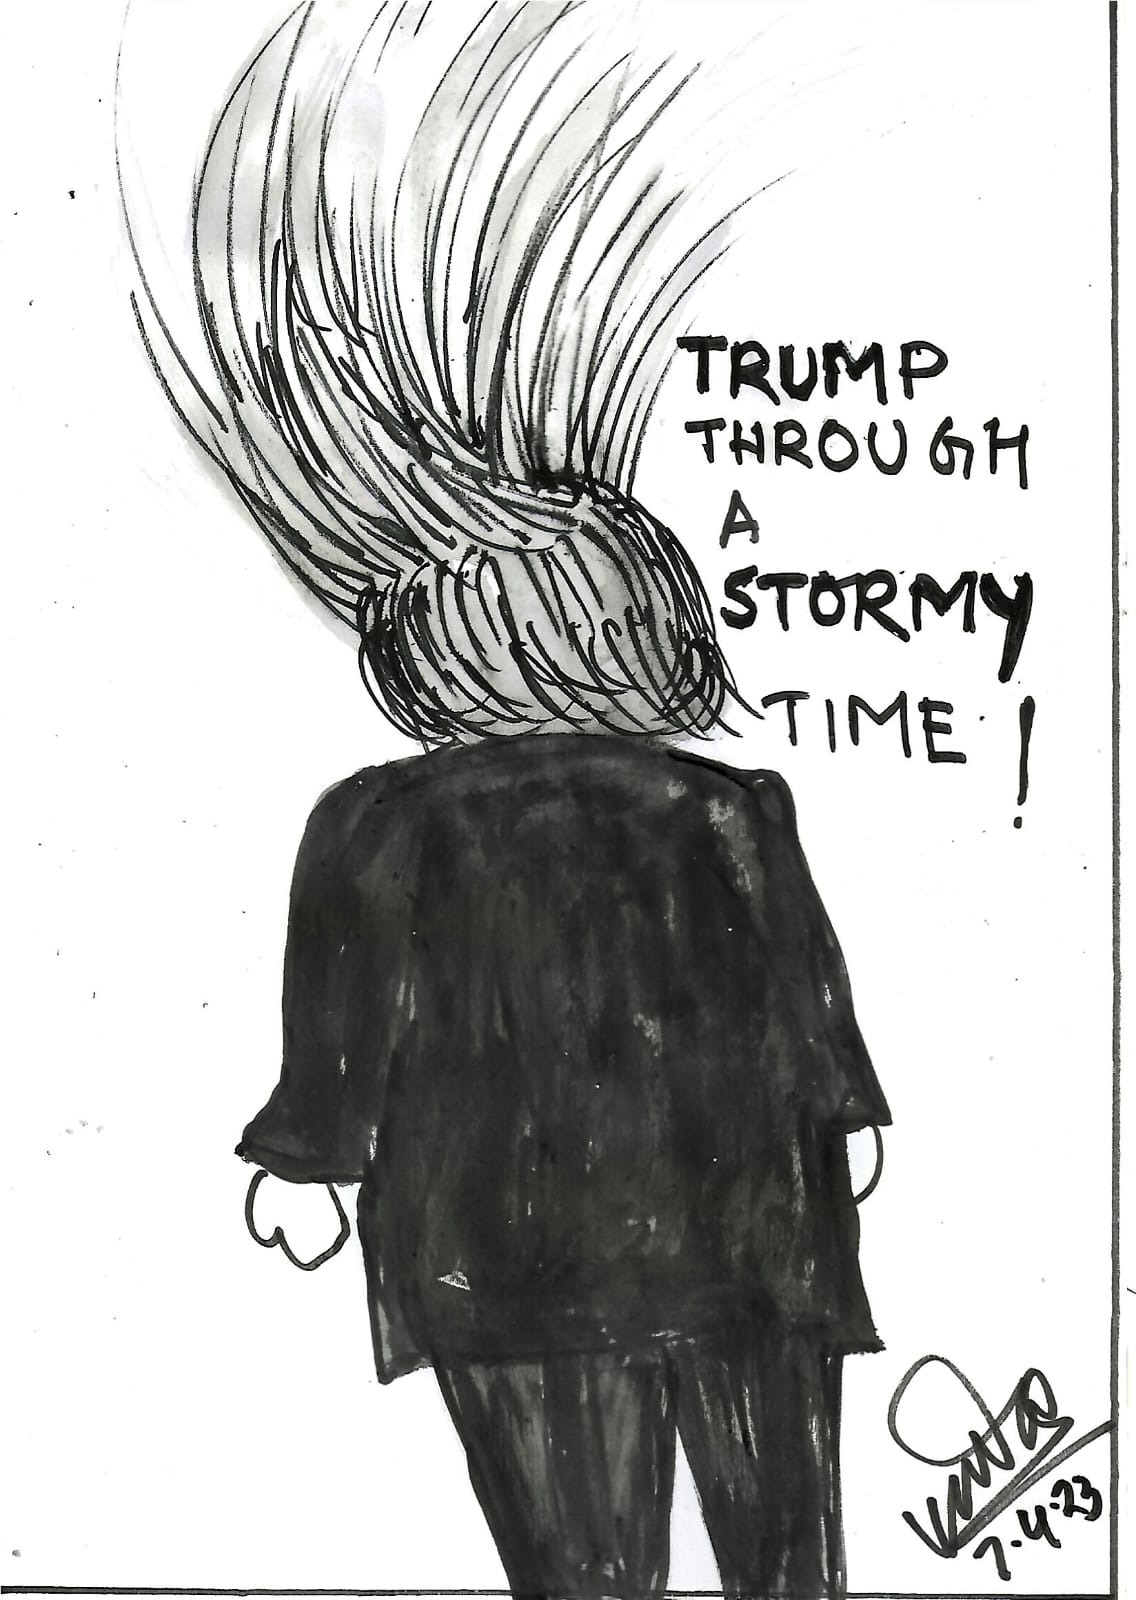 TRUMP
THROUGH
A
STORMY
TIME !
7-4-23